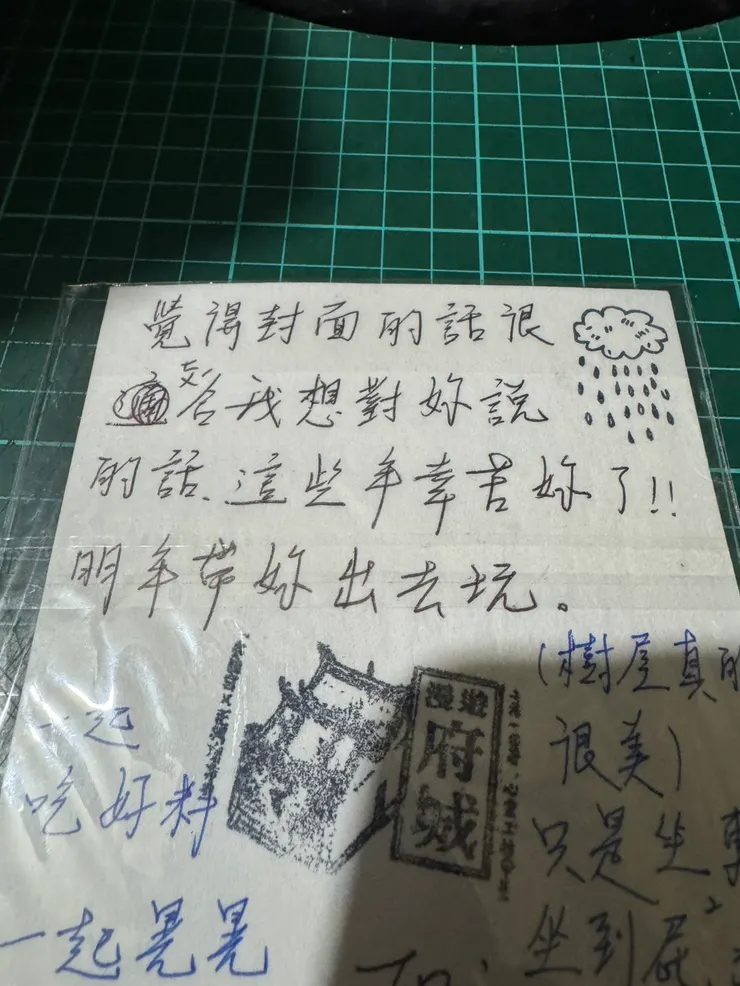 覺得封面的話很
符合我想對妳說
的話、這些年辛苦妳了!!
明年帶妳出去玩。
一起
吃好料
一起晃晃
漫遊
府城
(樹屋真的
很美)
只是坐車
坐到屁
To: